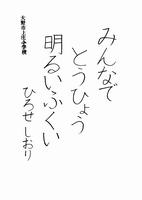 みんなで
とうひょう
明るいふくい
ひろせしおり
大野市上庄小学校